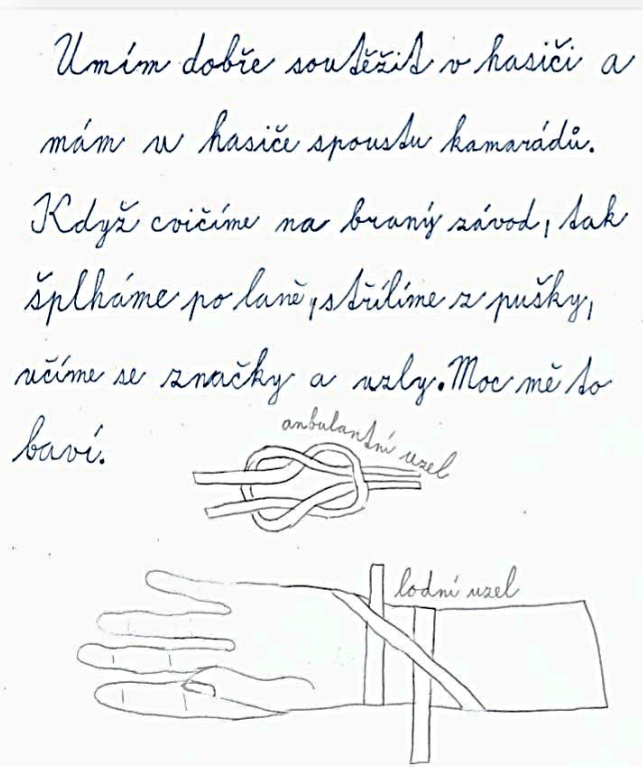 Umím dobře soutěžit v hasiči a
mám u hasiče spoustu kamarádů.
Když cvičíme na braný závod, tak
šplháme po laně, střílíme z pušky,
učíme se značky a uzly. Moc mě to
baví.
anbulantní uzel
lodní uzel